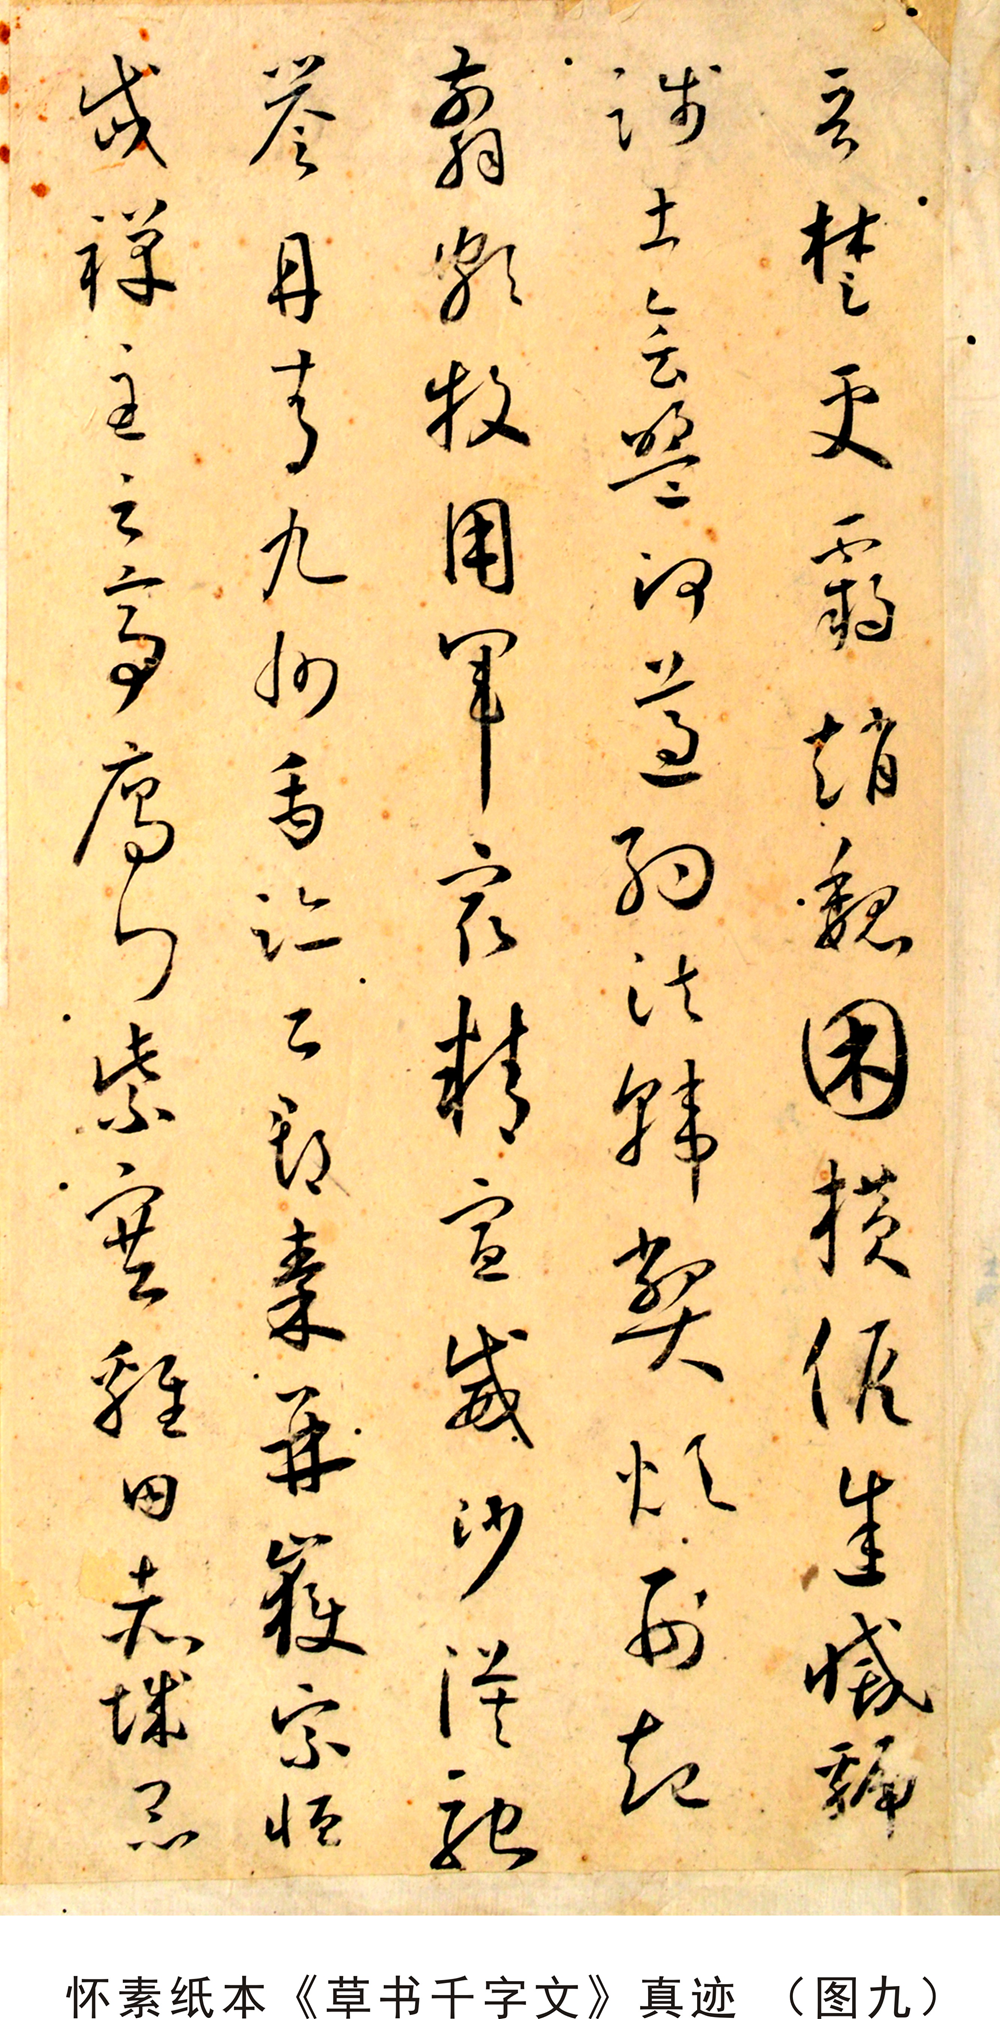 晉楚更霸趙魏困橫假途滅虢
踐土會盟何遵約法韓弊煩刑起
翦頗牧用軍最精宣威沙漠馳
譽丹青九州禹跡百郡秦并嶽宗恒
岱禪主云亭雁門紫塞雞田赤城昆
怀素纸本《草书千字文》真迹 （图九）